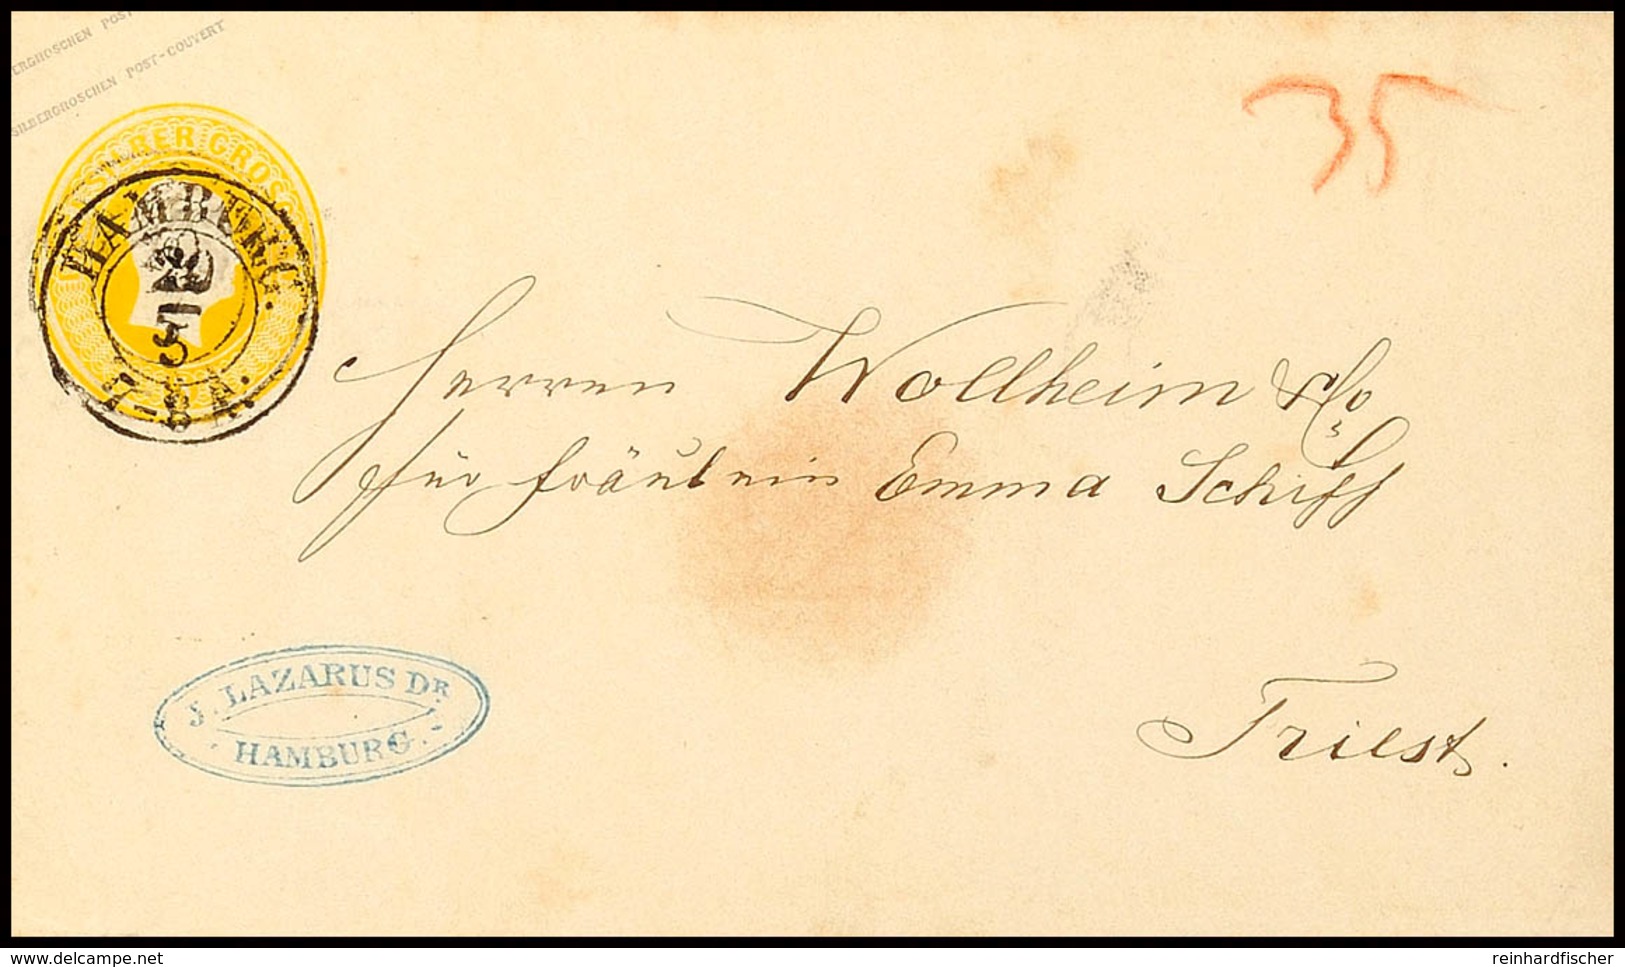 ERGROSCHEN POST
SILBERGROSCHEN POST-COUVERT
SILBER GROSC
HAMBURG.
20
5
7-8 A.
35
Herren Wollheim & Co
für Fräulein Emma Schiff
Triest.
J. LAZARUS DR.
HAMBURG.
delcampe.net
reinhardfischer